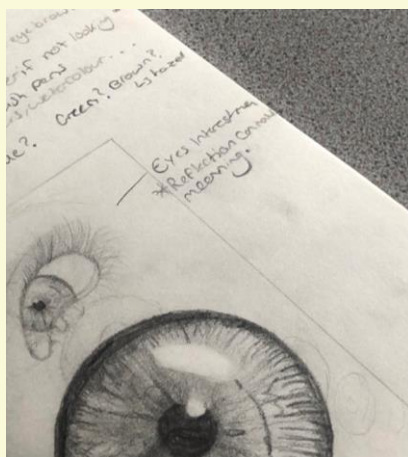 eyebrow
if not looking
pens
watercolour...
Green? Brown?
↳ hazel
Eyes interesting
*Reflection contain
meaning.